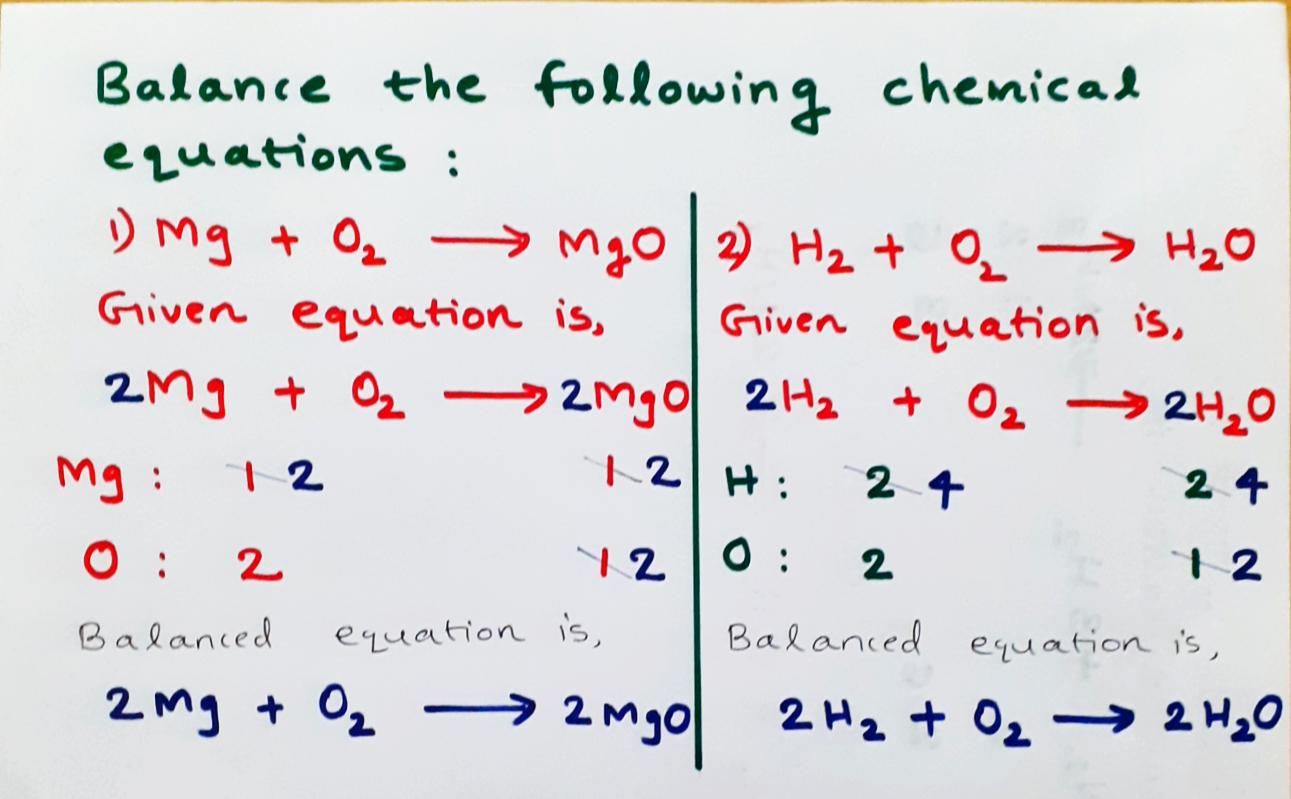 Balance the following chemical
equations :
1) Mg + O₂ ⟶ MgO
Given equation is,
2Mg + O₂ ⟶ 2MgO
Mg : 1 2 1 2
O : 2 1 2
Balanced equation is,
2Mg + O₂ ⟶ 2MgO
2) H₂ + O₂ ⟶ H₂O
Given equation is,
2H₂ + O₂ ⟶ 2H₂O
H : 2 4 2 4
O : 2 1 2
Balanced equation is,
2H₂ + O₂ ⟶ 2H₂O